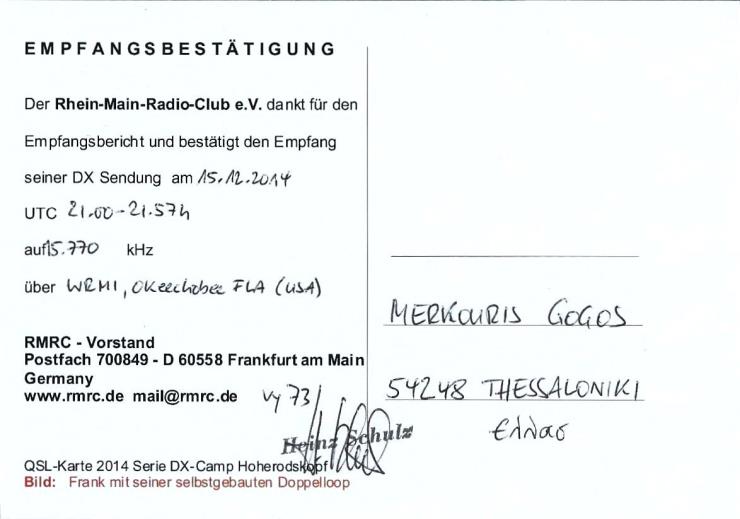 EMPFANGSBESTÄTIGUNG
Der Rhein-Main-Radio-Club e.V. dankt für den
Empfangsbericht und bestätigt den Empfang
seiner DX Sendung am 15.12.2014
UTC 21.00-21.57h
auf 15.770 kHz
über WRMI, Okeechobee FLA (USA)
RMRC - Vorstand
Postfach 700849 - D 60558 Frankfurt am Main
Germany
www.rmrc.de mail@rmrc.de vy 73
Heinz Schulz
QSL-Karte 2014 Serie DX-Camp Hoherodskopf
Bild: Frank mit seiner selbstgebauten Doppelloop
MERKOURIS GOGOS
54248 THESSALONIKI
Ελλας